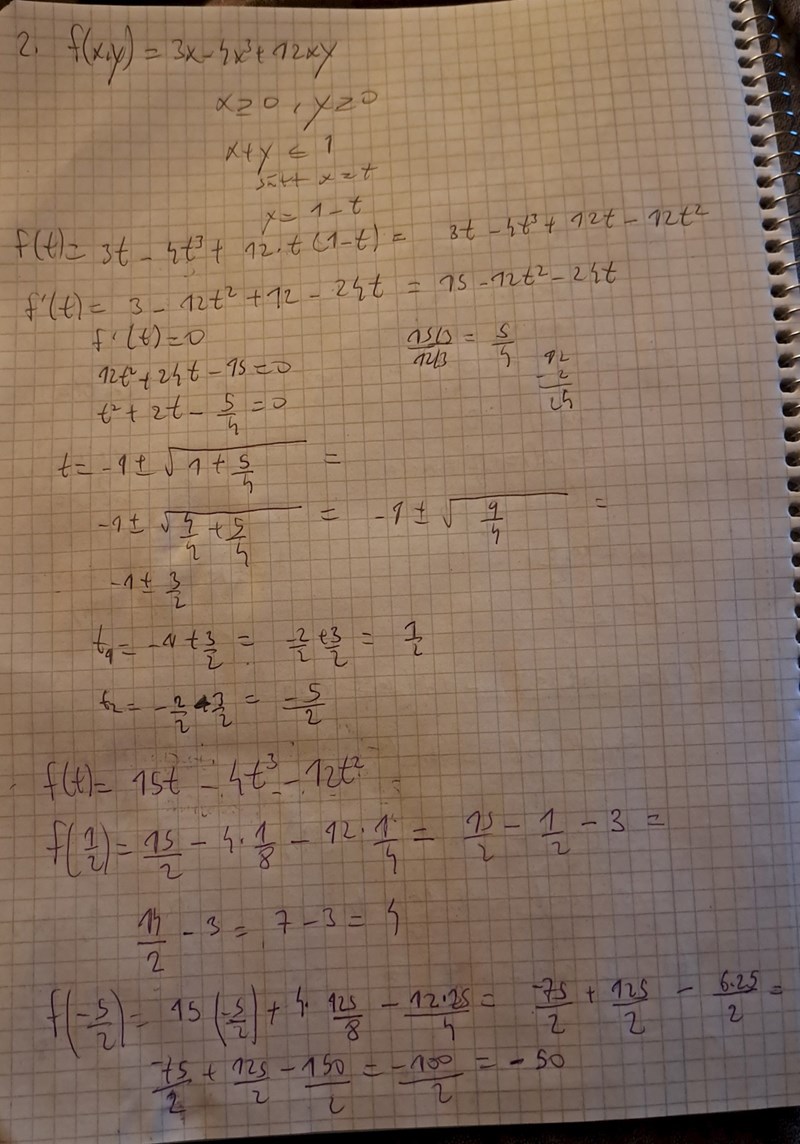 2. f(x,y) = 3x - 4x³ + 12xy
x ≥ 0, y ≥ 0
x + y ≤ 1
x = t
y = 1 - t
f(t) = 3t - 4t³ + 12·t(1-t) = 3t - 4t³ + 12t - 12t²
f'(t) = 3 - 12t² + 12 - 24t = 15 - 12t² - 24t
f'(t) = 0 15/3 / 12/3 = 5/4
12t² + 24t - 15 = 0 12 · 2 24
t² + 2t - 5/4 = 0
t = -1 ± √(1 + 5/4) =
-1 ± √(4/4 + 5/4) = -1 ± √(9/4) =
-1 ± 3/2
t₁ = -1 + 3/2 = -2/2 + 3/2 = 1/2
t₂ = -2/2 - 3/2 = -5/2
f(t) = 15t - 4t³ - 12t²
f(1/2) = 15/2 - 4·1/8 - 12·1/4 = 15/2 - 1/2 - 3 =
14/2 - 3 = 7 - 3 = 4
f(-5/2) = 15(-5/2) + 4·125/8 - 12·25/4 = -75/2 + 125/2 - 6·25/2 =
-75/2 + 125/2 - 150/2 = -100/2 = -50